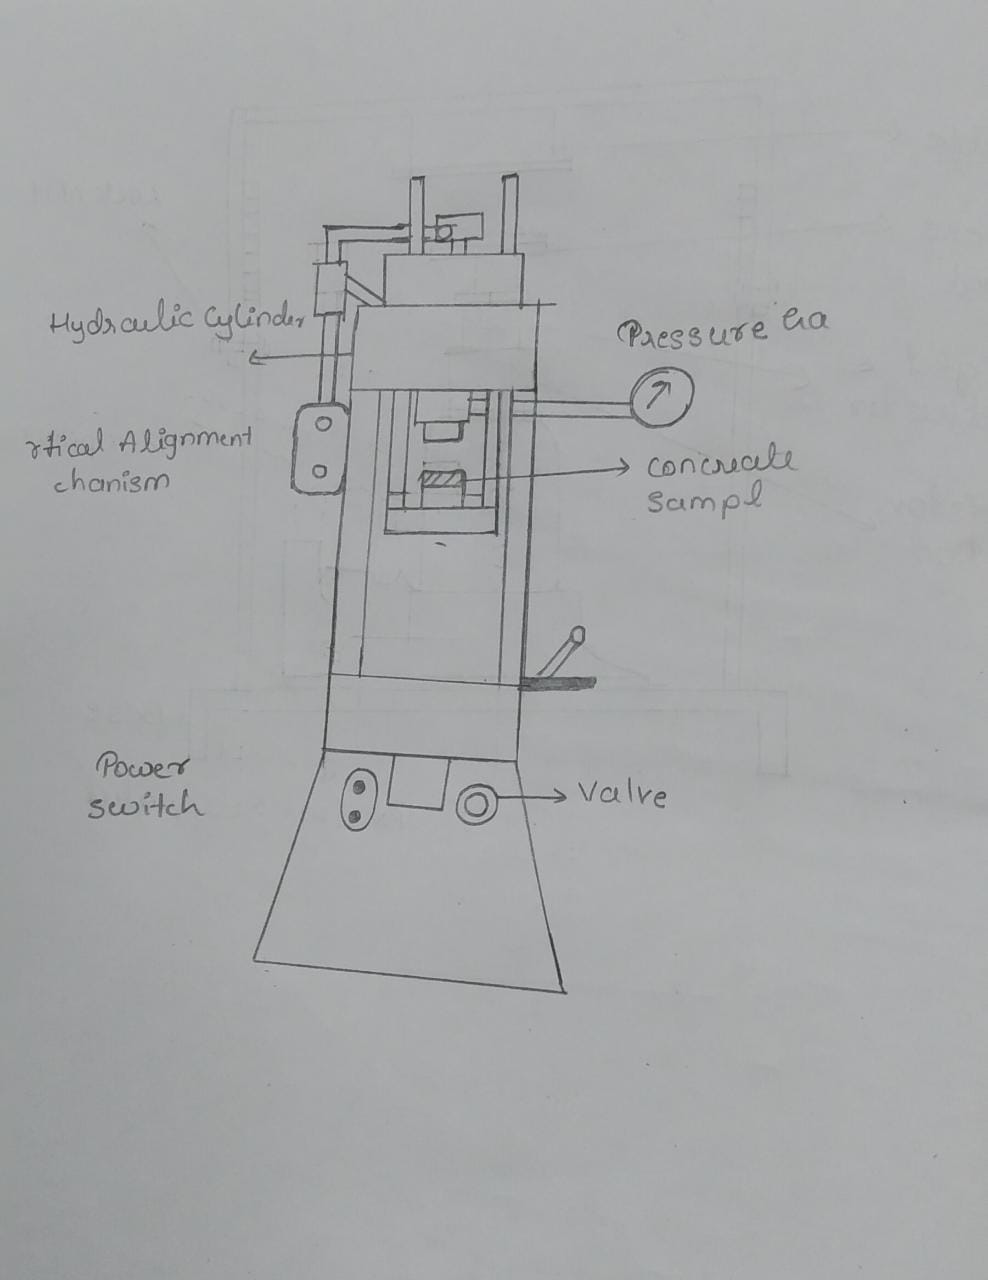 Hydraulic Cylinder
Pressure Ga
rtical Alignment
chanism
concreate
sampl
Power
switch
valve